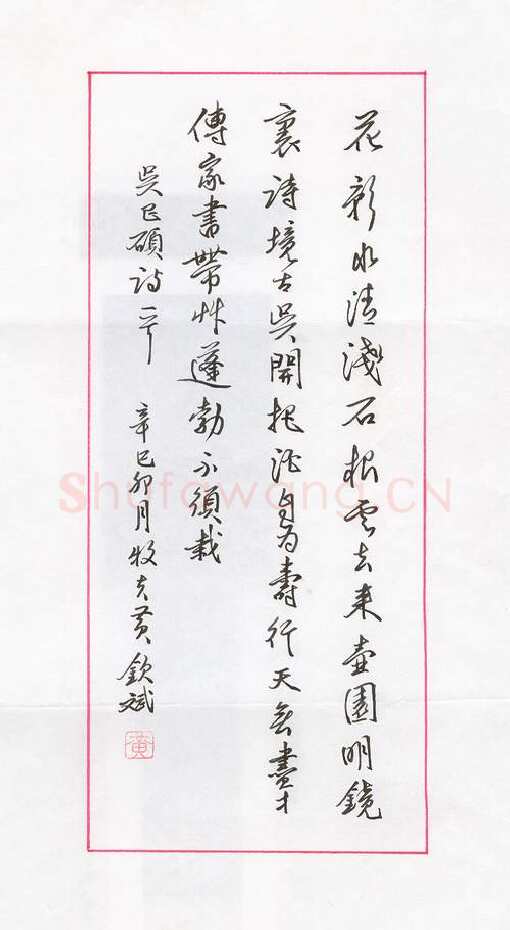 花影水清淺石根雲去来壺園明鏡
裏詩境古吳開把酒自為壽行天無盡才
傳家書帶艸蓬勃不須栽
吳昌碩詩一首 辛巳卯月牧夫黄欽斌
黄
Shufawang.CN